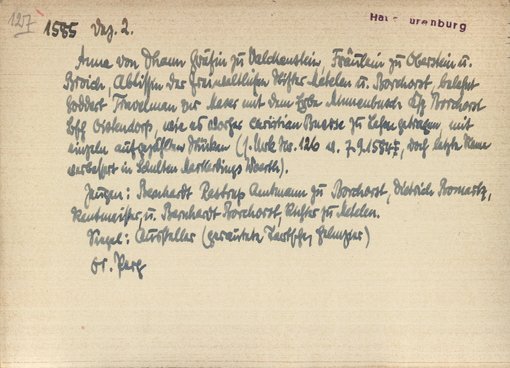 127
1585 Dez. 2.
Haus Surenburg
Anna von Dhaun Gräfin zu Valckenstein, Fräulein zu Oberstein u.
Broich, Äbtissin der freiweltlichen Stifter Metelen u. Borchorst, belehnt
Goddert Travelman zur Maser mit dem Erbe Minnenbusch Ksp Borchorst
Bff Ostendorp, wie es vorher Christian Buerse zu Lehen getragen, mit
einzeln aufgezählten Stücken (s. Urk No. 126 v. 7.9.1584, doch letzte Name
verbessert in Schulten
Zeugen: Bernhardt Rastrup Amtmann zu Borchorst, Dietrich
Rentmeister, u. Bernhardt Borchorst, Richter zu Metelen.
Siegel: Aussteller (gerautete Tartsche, Helmzier)
Or. Perg